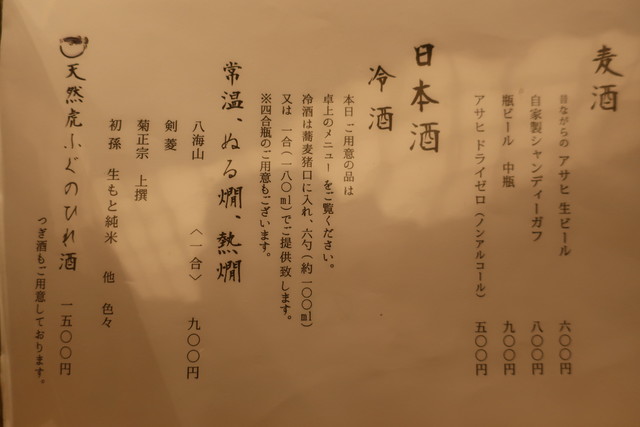 麦酒
昔ながらの アサヒ 生ビール 六〇〇円
自家製シャンディーガフ 八〇〇円
瓶ビール 中瓶 九〇〇円
アサヒ ドライゼロ（ノンアルコール） 五〇〇円
日本酒
冷酒
本日 ご用意の品は
卓上のメニュー をご覧ください。
冷酒は蕎麦猪口に入れ、六勺（約一〇〇ml）
又は 一合（一八〇ml）でご提供致します。
※四合瓶のご用意もございます。
常温、ぬる燗、熱燗
〈一合〉 九〇〇円
八海山
剣菱
菊正宗 上撰
初孫 生もと純米 他 色々
天然虎ふぐのひれ酒 一五〇〇円
つぎ酒もご用意しております。